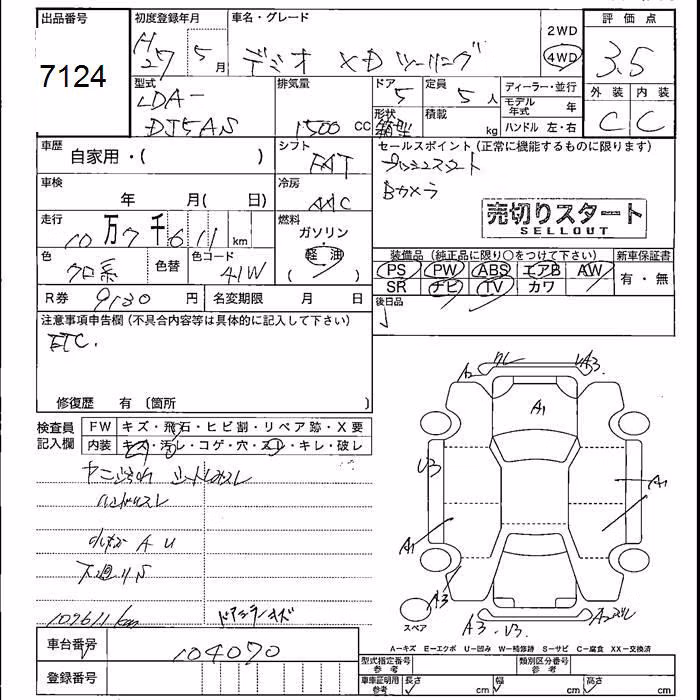 出品番号
7124
初度登録年月
H27 5月
車名・グレード
デミオ XDツーリング
2WD
4WD
評価点
3.5
外装 内装
C C
型式
LDA-
DJ5AS
排気量
1500 cc
ドア
5
定員
5人
形状
箱型
積載
kg
ディーラー・並行
モデル年式 年
ハンドル 左・右
車歴
自家用・( )
シフト
FAT
セールスポイント(正常に機能するものに限ります)
プッシュスタート
Bカメラ
車検
年 月( 日)
冷房
AAC
売切りスタート
SELLOUT
走行
10万7千611km
燃料
ガソリン・
(軽油)
色
クロ系
色替
色コード
41W
装備品(純正品に限り○をつけて下さい)
PS PW ABS エアB AW
SR ナビ TV カワ
新車保証書
有・無
R券 9130円
名変期限 月 日
後日品
注意事項申告欄(不具合内容等は具体的に記入して下さい)
ETC.
修復歴 有(箇所 )
検査員記入欄
FW キズ・飛石・ヒビ割・リペア跡・X要
内装 キズ・汚レ・コゲ・穴・スレ・キレ・破レ
シートスレ
ハンドルスレ
A U
下廻りS
107611km
ドアミラーキズ
A2 ワレ UA3.
A1
U3
A1
A1
A3
スペア
A3・U3.
A2ズレ
A−キズ E−エクボ U−凹み W−補修跡 S−サビ C−腐食 XX−交換済
車台番号
104070
登録番号
型式指定番号 参考
類別区分番号 参考
車庫証明用 参考
長さ cm 幅 cm 高さ cm